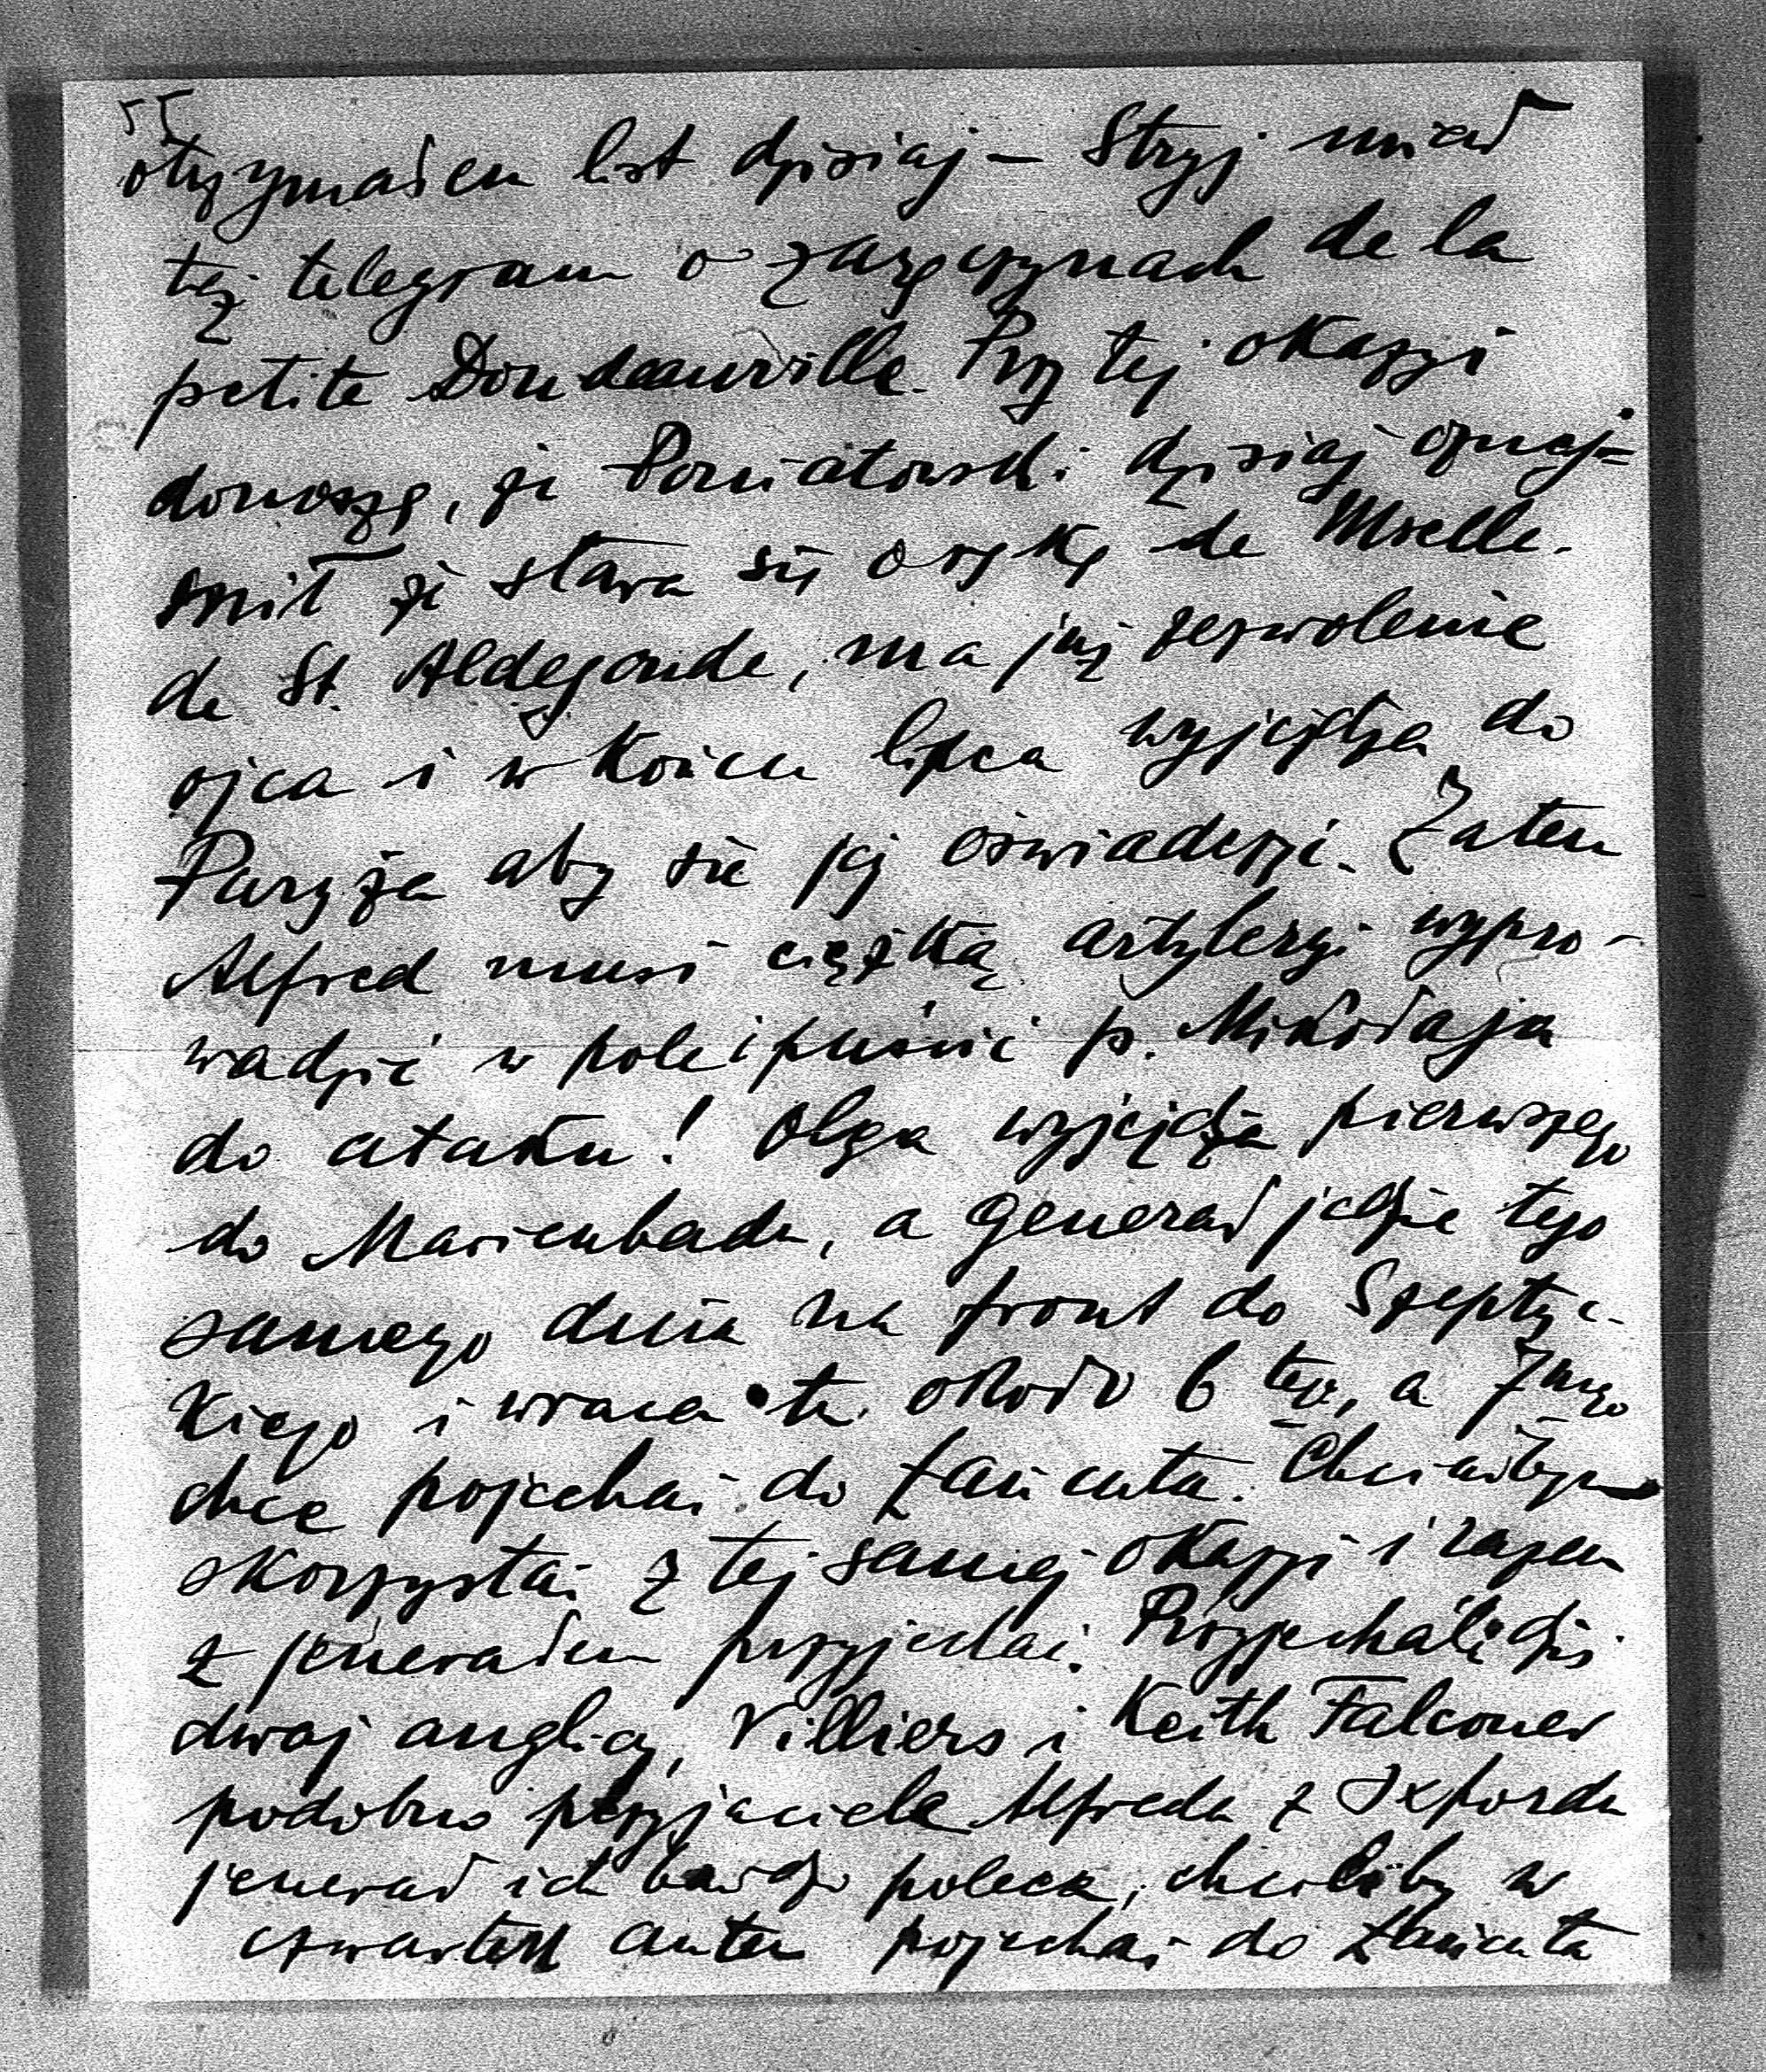 55
otrzymałem list dzisiaj — Stryj miał
też telegram o zaręczynach de la
petite Doudeauville. Przy tej okazyi
donoszę, że Poniatowski dzisiaj oznaj=
mił że stara się o rękę de Mselle.
de St. Aldegonde, ma już zezwolenie
ojca i w końcu lipca wyjeżdża do
Paryża aby się jej oświadczyć. Zatem
Alfred musi ciężką artyleryi wypro-
wadzić w pole i puścić p. Mikołaja
do ataku! Olga wyjeżdża pierwszego
do Marienbadu, a generał jedzie tego
samego dnia na front do Szeptyc-
kiego i wraca tu około 6 tego, a 7mego
chce pojechać do Łańcuta. Chciałbym
skorzystać z tej samej okazyi i razem
z jenerałem przyjechać. Przyjechali dziś
dwaj anglicy, Villiers i Keith Falconer
podobno przyjaciele Alfreda z Oxfordu
jenerał ich bardzo poleca, chcieliby w
czwartek autem pojechać do Łańcuta